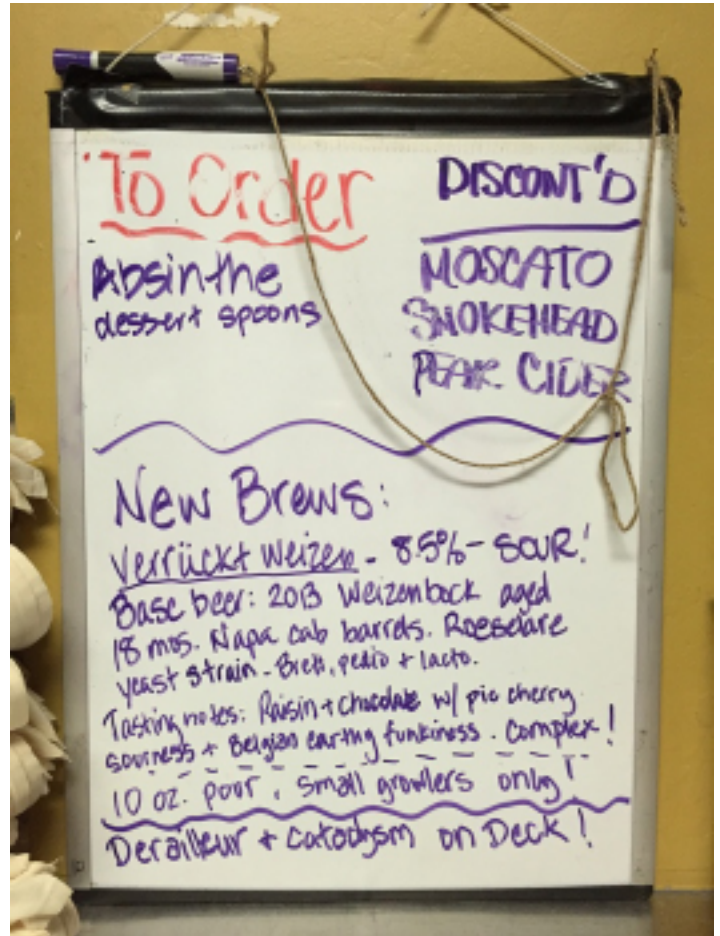 To Order
Absinthe
dessert spoons
DISCONT'D
MOSCATO
SMOKEHEAD
PEAR CIDER
New Brews:
Verrückt Weizen - 8.5% - SOUR!
Base beer: 2013 Weizenbock aged
18 mos. Napa cab barrels. Roeselare
yeast strain - Brett, pedio + lacto.
Tasting notes: Raisin + chocolate w/ pie cherry
sourness + Belgian earthy funkiness. Complex!
10 oz. pour, small growlers only!
Derailleur + Cataclysm on Deck!